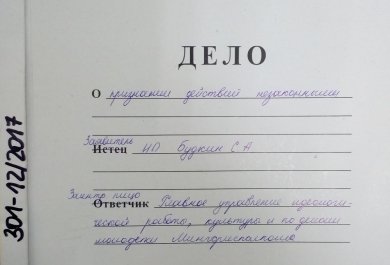 ДЕЛО
О признании действий незаконными
Заявитель
Истец ИП Будкин С А
Заинтр лицо
Ответчик Главное управление идеологи-
ческой работы, культуры и по делам
молодежи Мингорисполкома
301-12/2017